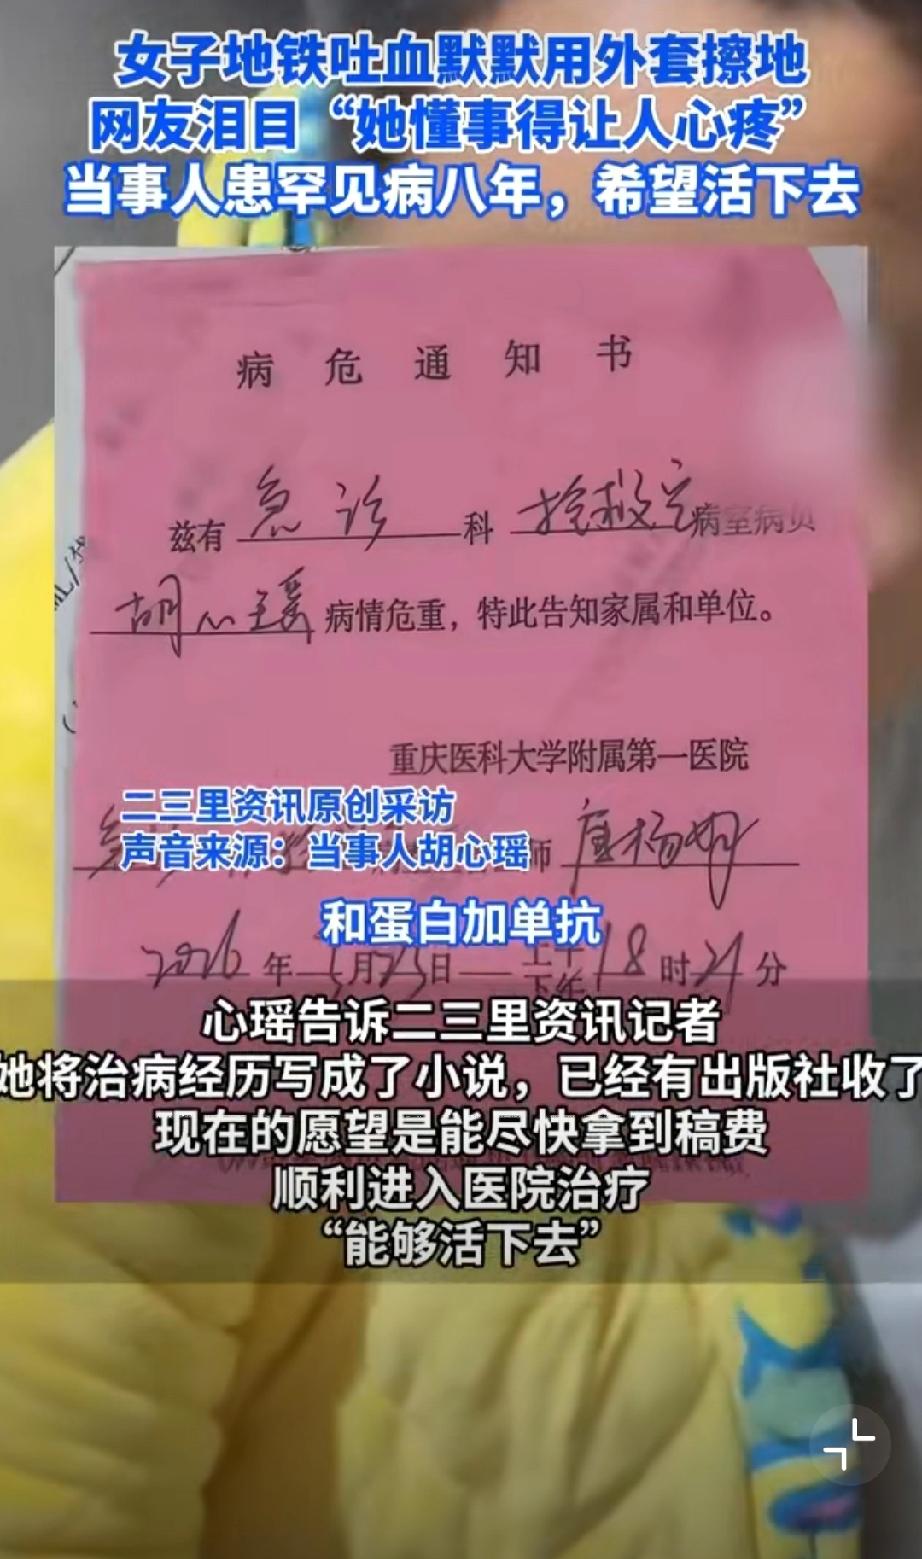 女子地铁吐血默默用外套擦地
网友泪目“她懂事得让人心疼”
当事人患罕见病八年，希望活下去
病危通知书
兹有 急诊 科 抢救室 病室病员
胡心瑶 病情危重，特此告知家属和单位。
重庆医科大学附属第一医院
二三里资讯原创采访
声音来源：当事人胡心瑶
师
和蛋白加单抗
2026 年 月23日 上午 下午 18 时 21 分
心瑶告诉二三里资讯记者
她将治病经历写成了小说，已经有出版社收了
现在的愿望是能尽快拿到稿费
顺利进入医院治疗
“能够活下去”